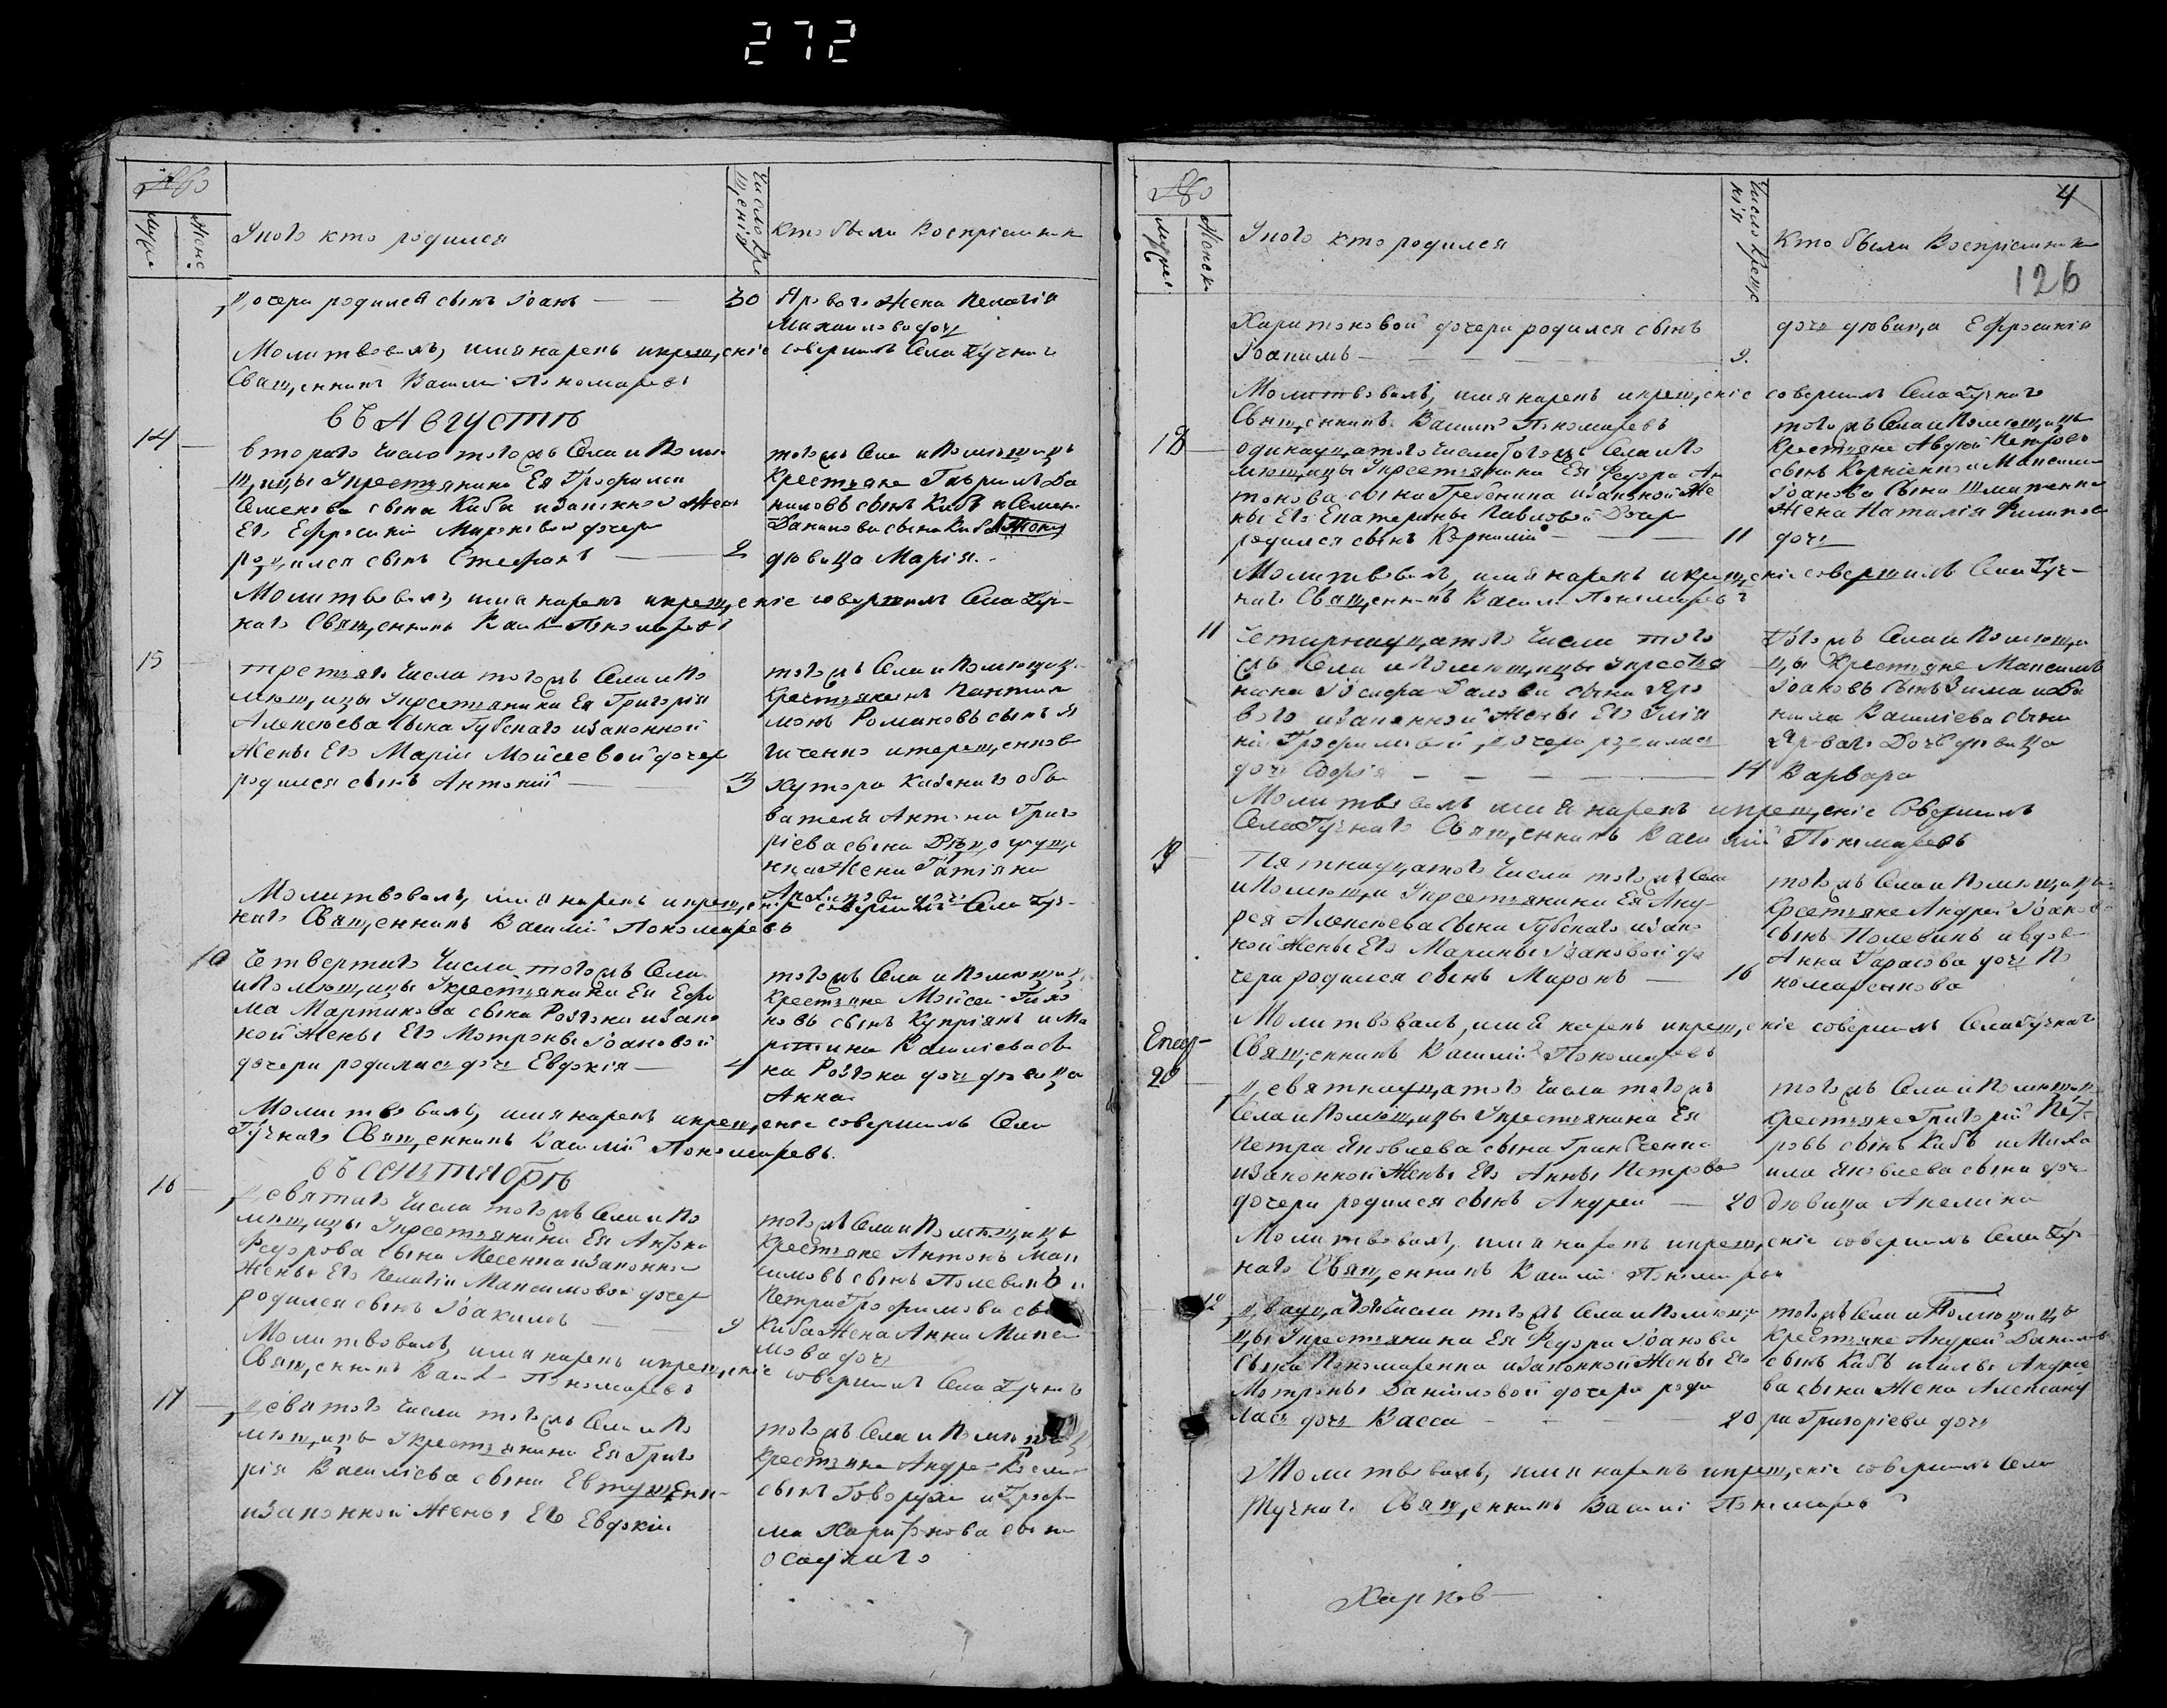 272
№
Мужс
Женс
У кого кто родился
Число Кре
щенія
Кто были Воспріемники
дочери родился сынъ Іоанъ — — 30
Яроваго Жена Пелагія
Михаилова дочь
Молитвовалъ, имя нарекъ и крещеніе совершилъ Села Тучнаго
Священникъ Василій Пономаревъ
въ Августѣ
14
втораго Числа тогожъ Села и Помѣ
щицы У крестьянина Ея Трофима
Семенова сына Киба и законной Жены
Его Ефросиніи Мироновой дочери
родился сынъ Стефанъ — 2
тогожъ Села и Помѣщицы
Крестьяне Гаврiилъ Да
ниловъ сынъ Кибъ и Семена
Данилова сына Кибы
дѣвица Марія.
Молитвовалъ, имя нарекъ и крещеніе совершилъ Села Туч-
наго Священникъ Васи Пономаревъ
15
третяго Числа тогожъ Села и По
мѣщицы У крестьянина Ея Григорія
Алексѣева Сына Губскаго и законной
Жены Его Маріи Мойсеевой дочери
родился сынъ Антоній — 3
тогожъ Села и Помѣщицы
Крестьянинъ Пантил
монъ Романовъ сынъ
хутора Казеннаго обы
вателя Антона Григо
ріева сына
Жена Татіяна
Архипова дочь
Молитвовалъ, имя нарекъ и крещеніе совершилъ Села Туч-
наго Священникъ Василій Пономаревъ
10
Четвертаго Числа тогожъ Села
и Помѣщицы У крестьянина Ея Ефи
ма Мартинова сына Розгона и закон
ной Жены Его Мотроны Іоановой
дочери родилась дочь Евдокія — 4
тогожъ Села и Помѣщицы
Крестьяне Мойсей
новъ сынъ Купріянъ и Ма
ртина Василіева сы
на Розгона дочь дѣвица
Анна
Молитвовалъ, имя нарекъ и крещеніе совершилъ Села
Тучнаго Священникъ Василій Пономаревъ.
въ сентябрѣ
16
девятаго Числа тогожъ Села и По
мѣщицы У крестьянина Ея Антона
Федорова сына Месенка и законной
Жены Его Пелагіи Максимовой дочери
родился сынъ Іоакимъ — 9
тогожъ Села и Помѣщицы
Крестьяне Антонъ Мак
симовъ сынъ Полевикъ и
Петра Трофимова сына
Киба Жена Анна
дочь
Молитвовалъ, имя нарекъ и крещеніе совершилъ Села Тучнаго
Священникъ Васи Пономаревъ
17
девятаго Числа тогожъ Села и По
мѣщицы У крестьянина Ея Григо
рія Василіева сына
и законной Жены Его Евдокіи
тогожъ Села и Помѣщицы
Крестьяне Андрей
сынъ Говоруха и Трофи
ма Харитонова сына
Осадчаго
№
Мужес
Женск
У кого кто родился
Число Крещ
нія
Кто были Воспріемники
4
126
Харитоновой дочери родился сынъ
Іоакимъ — 9.
дочь дѣвица Ефросинія
Молитвовалъ, имя нарекъ и крещеніе совершилъ Села Тучнаго
Священникъ Василій Пономаревъ
18
одинадцатаго Числа тогожъ Села и По
мѣщицы У крестьянина Ея Федора Ан
тонова сына Гребеника и законной Же
ны Его Екатерины Павловой Дочери
родился сынъ Корнилій — 11
тогожъ Села и Помѣщицы
Крестьяне Авдій Петровъ
сынъ Корніенко и Максима
Іоанова Сына Шматенка
Жена Наталія Филипова
дочь
Молитвовалъ, имя нарекъ и крещеніе совершилъ Села Туч-
наго Священникъ Василій Пономаревъ
11
Четырнадцатаго Числа того
жъ Села и Помѣщицы У крестья
нина Іосифа Савова сына Яро
ваго и законной Жены Его
Трофимовой, дочери родилась
дочь Софія — 14
Тогожъ Села и Помѣщи
цы Крестьяне Максимъ
Іоановъ Сынъ Зима и Да
нила Василіева сына
Яроваго Дочь дѣвица
Варвара
Молитвовалъ имя нарекъ и крещеніе Совершилъ
Села Тучнаго Священникъ Василій Пономаревъ
19
Пятнадцатаго Числа тогожъ Села
и Помѣщи У крестьянина Ея Анд
рея Алексѣева Сына Губскаго и зако
ной Жены Его Марины Іоановой до
чери родился сынъ Миронъ — 16
тогожъ Села и Помѣщицы
Крестьяне Андрей Іоановъ
сынъ Полевикъ и вдова
Анна Тарасова дочь По
номаренкова
Молитвовалъ, имя нарекъ и крещеніе совершилъ Села Тучнаго
Священникъ Василій Пономаревъ
20
девятнадцатаго Числа тогожъ
Села и Помѣщицы У крестьянина Ея
Петра Яковлева сына
и законной Жены Его Анны Петровой
дочери родился сынъ Андрей — 20
тогожъ Села и Помѣщицы
Крестьяне Григорій Пет-
ровъ сынъ Кибъ и Миха
ила Яковлева сына дочь
дѣвица Акелина
Молитвовалъ, имя нарекъ и крещеніе совершилъ Села Туч-
наго Священникъ Василій Пономаревъ
12
двадцатаго Числа тогожъ Села и Помѣщи
цы У крестьянина Ея Федора Іоанова
Сына Пономаренка и законной Жены Его
Мотроны Даніиловой дочери роди
лась дочь Васса — 20
тогожъ Села и Помѣщицы
Крестьяне Андрей Даниловъ
сынъ Кибъ и Силы Андрее
ва сына Жена Александ
ра Григоріева дочь
Молитвовалъ, имя нарекъ и крещеніе совершилъ Села
Тучнаго Священникъ Василій Пономаревъ